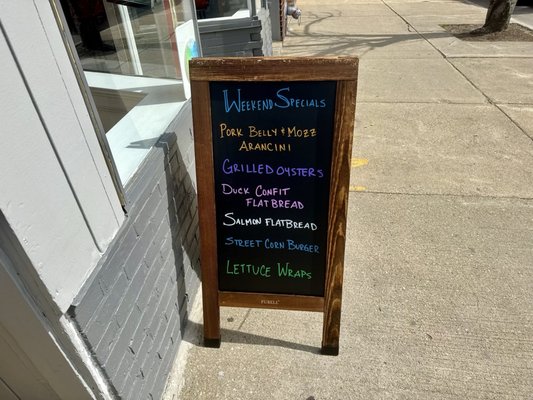 Weekend Specials
Pork Belly & Mozz
Arancini
Grilled Oysters
Duck Confit
Flatbread
Salmon Flatbread
Street Corn Burger
Lettuce Wraps